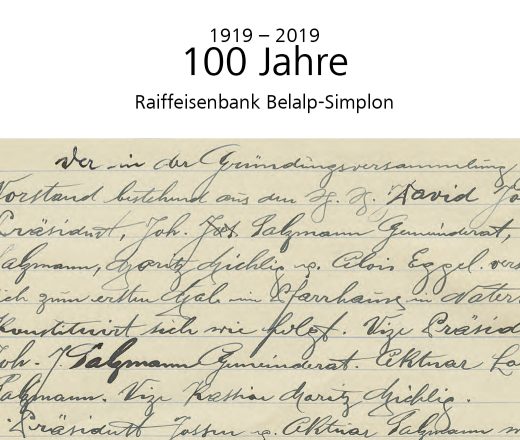 1919 – 2019
100 Jahre
Raiffeisenbank Belalp-Simplon
Der in der Gründungsversammlung
Vorstand bestehend aus den H. H. David Jo
Präsident, Joh. Jos. Salzmann Gemeinderat,
Salzmann, Moritz Michlig u. Alois Eggel. vers
sich zum ersten Male im Pfarrhause in Naters
Konstituirt sich wie folgt. Vize Präsid
Joh. J. Salzmann Gemeinderat. Aktuar
Salzmann. Vize Kassier Moritz Michlig.
Präsident Jossen u. Aktuar Salzmann